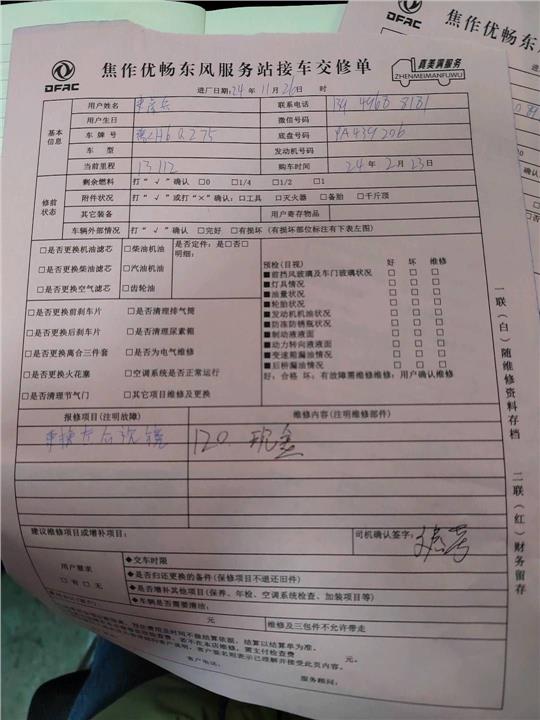 DFAC
焦作优畅东风服务站接车交修单
真美满服务
ZHENMEIMANFUWU
进厂日期:24 年 11 月 26 日 时
基本信息
用户姓名
联系电话 134 4968 8181
用户生日 微信号码
车牌号 底盘号码 PA439206
车 型 发动机号码
当前里程 13112 购车时间 24 年 2 月 23 日
修前状态
剩余燃料 打“√”确认 □0 □1/4 □1/2 □1
附件状况 打“√”或打“×”确认:□工具 □灭火器 □备胎 □千斤顶
其它装备 用户寄存物品
车辆外部情况 打“√”确认 □完好 □有损坏(有损坏部位标注有下表左图)
□是否更换机油滤芯 □柴油机油 是否定件:是□否□
明细:
□是否更换柴油滤芯 □汽油机油
□是否更换空气滤芯 □齿轮油
预检(目视) 好 坏 维修
■前挡风玻璃及车门玻璃状况 □ □ □
■灯具情况 □ □ □
■油量状况 □ □ □
■轮胎状况 □ □ □
■发动机机油状况 □ □ □
■防冻防锈瓶状况 □ □ □
■制动液液面 □ □ □
■动力转向液液面 □ □ □
■变速箱漏油情况 □ □ □
■后桥漏油情况 □ □ □
好:合格 坏:有故障需维修维修:用户确认维修
□是否更换前刹车片 □是否清理排气筒
□是否更换后刹车片 □是否清理尿素箱
□是否更换离合三件套 □是否为电气维修
□是否更换火花塞 □空调系统是否正常运行
□是否清理节气门 □其它项目维修及更换
报修项目(注明故障) 维修内容(注明维修部件)
120. 现金
建议维修项目或增补项目: 司机确认签字:
用户要求
□有 □无
◆交车时限
◆是否归还更换的备件(保修项目不退还旧件)
◆是否增补其他项目(保养、年检、空调系统检查、加装项目等)
◆车辆是否需要清洁:
元 维修及三包件不允许带走
结算以结算单为准。
若不在本店维修,需支付检查费 元。
客户签名则表示已理解并接受此页内容。
客户电话: 服务顾问:
一联(白)随维修资料存档
二联(红)财务留存
DFAC
焦作优畅东